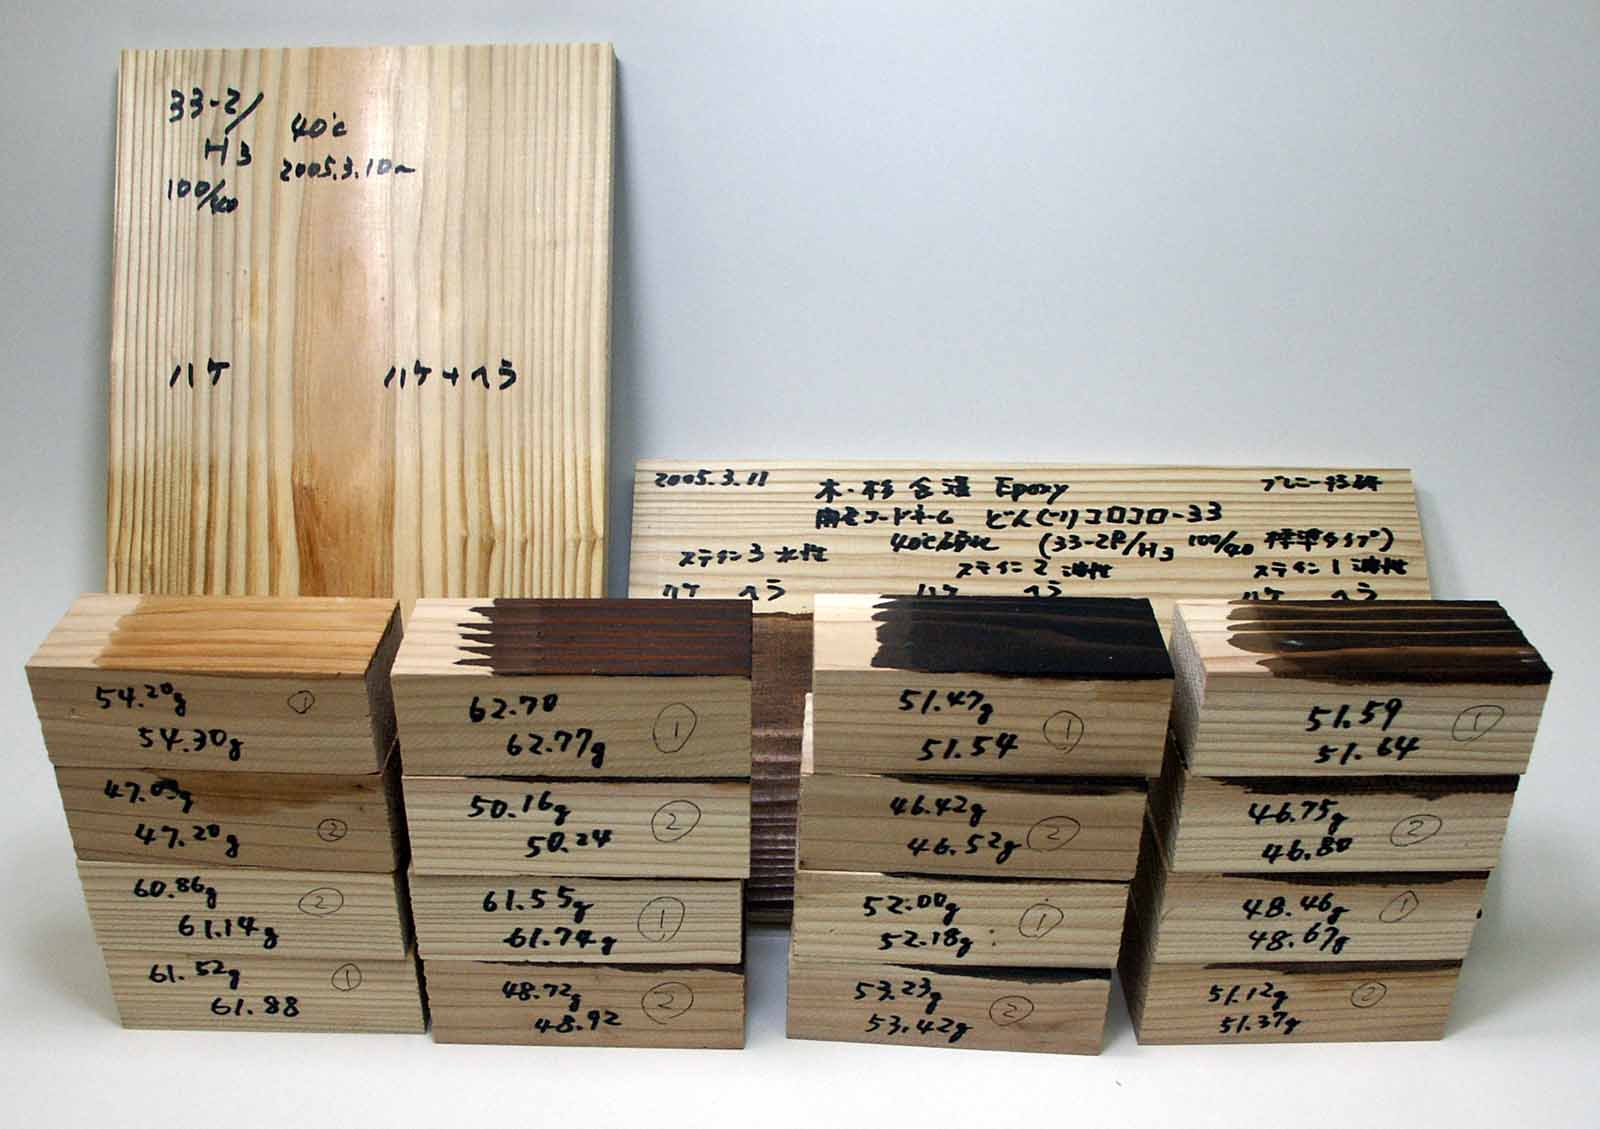 33-2/
H3
100/40
40℃
2005.3.10~
ハケ
ハケ+ヘラ
2005.3.11
木・杉 含浸 Epoxy
開発コードネーム どんぐりコロコロ-33
40℃ (33-2P/H3 100/40 標準タイプ)
ステイン3 水性
ステイン2 油性
ステイン1 油性
ハケ ヘラ
ハケ ヘラ
ハケ ヘラ
54.20g ①
54.30g
47.20g ②
60.86g ②
61.14g
61.52g ①
61.88
62.70 ①
62.77g
50.16g ②
50.24
61.55g ①
61.74g
48.72g ②
48.92
51.47g ①
51.54
46.42g ②
46.52g
52.00g ①
52.18g
53.23g ②
53.42g
51.59 ①
51.64
46.75g ②
46.80
48.46g ①
48.67g
51.12g ②
51.37g